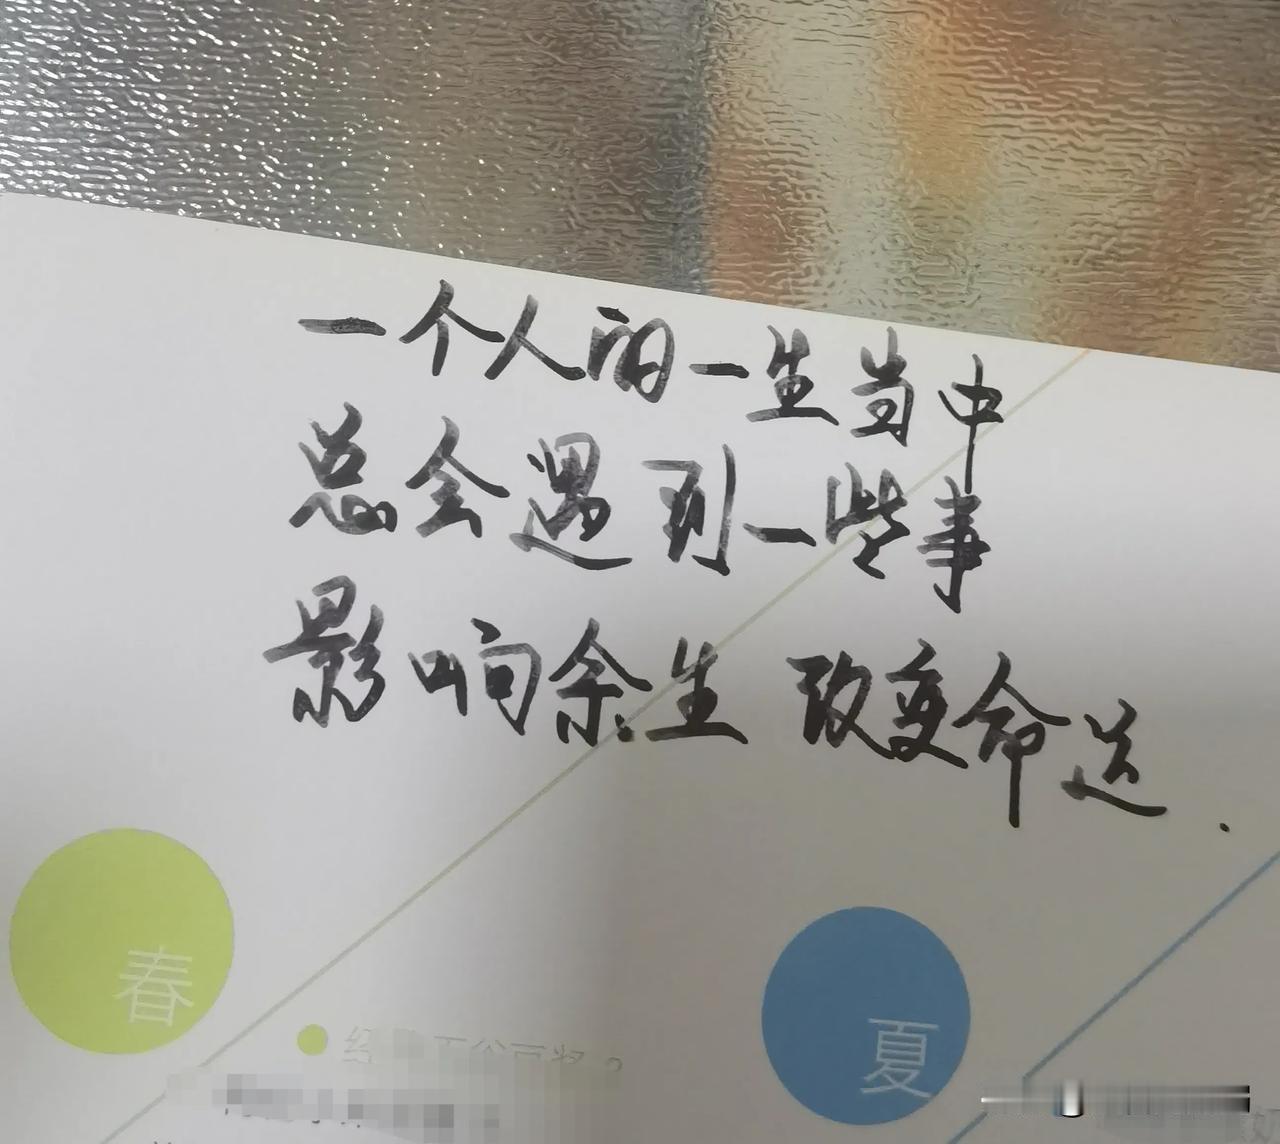 一个人的一生当中
总会遇到一些事
影响余生 改变命运.
春
夏